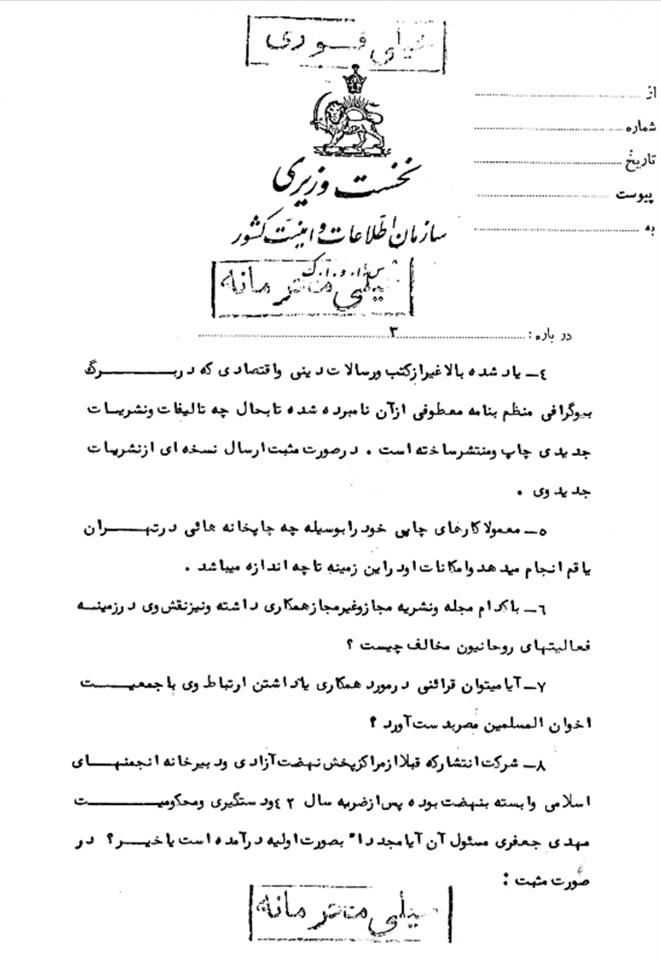 خیلی فوری
از
شماره
تاریخ
پیوست
به
نخست وزیری
سازمان اطلاعات و امنیت کشور
س.ا.و.ا.ک
خیلی محرمانه
درباره : ۳
٤ـ یاد شده بالا غیر از کتب ورسالات دینی واقتصادی که در بــرگ
بیوگرافی منظم بنامه معطوفی ازآن نامبرده شده تا بحال چه تالیفات ونشریات
جدیدی چاپ ومنتشرساخته است . درصورت مثبت ارسال نسخه ای ازنشریات
جدید وی .
٥ـ معمولا کارهای چاپی خود را بوسیله چه چاپخانه هائی درتهــران
یا قم انجام میدهد وامکانات اودراین زمینه تا چه اندازه میباشد .
٦ـ باکدام مجله ونشریه مجازوغیرمجازهمکاری داشته ونیزنقش وی درزمینه
فعالیتهای روحانیون مخالف چیست ؟
٧ـ آیا میتوان قرائنی درمورد همکاری یاداشتن ارتباط وی با جمعیــت
اخوان المسلمین مصربدست آورد ؟
٨ـ شرکت انتشارکه قبلا ازمراکزپخش نهضت آزادی ودبیرخانه انجمنهــای
اسلامی وابسته بنهضت بوده پس ازضربه سال ٤٢ ودستگیری ومحکومیــت
مهدی جعفری مسئول آن آیا مجددا" بصورت اولیه درآمده است یا خیــر؟ در
صورت مثبت :
خیلی محرمانه